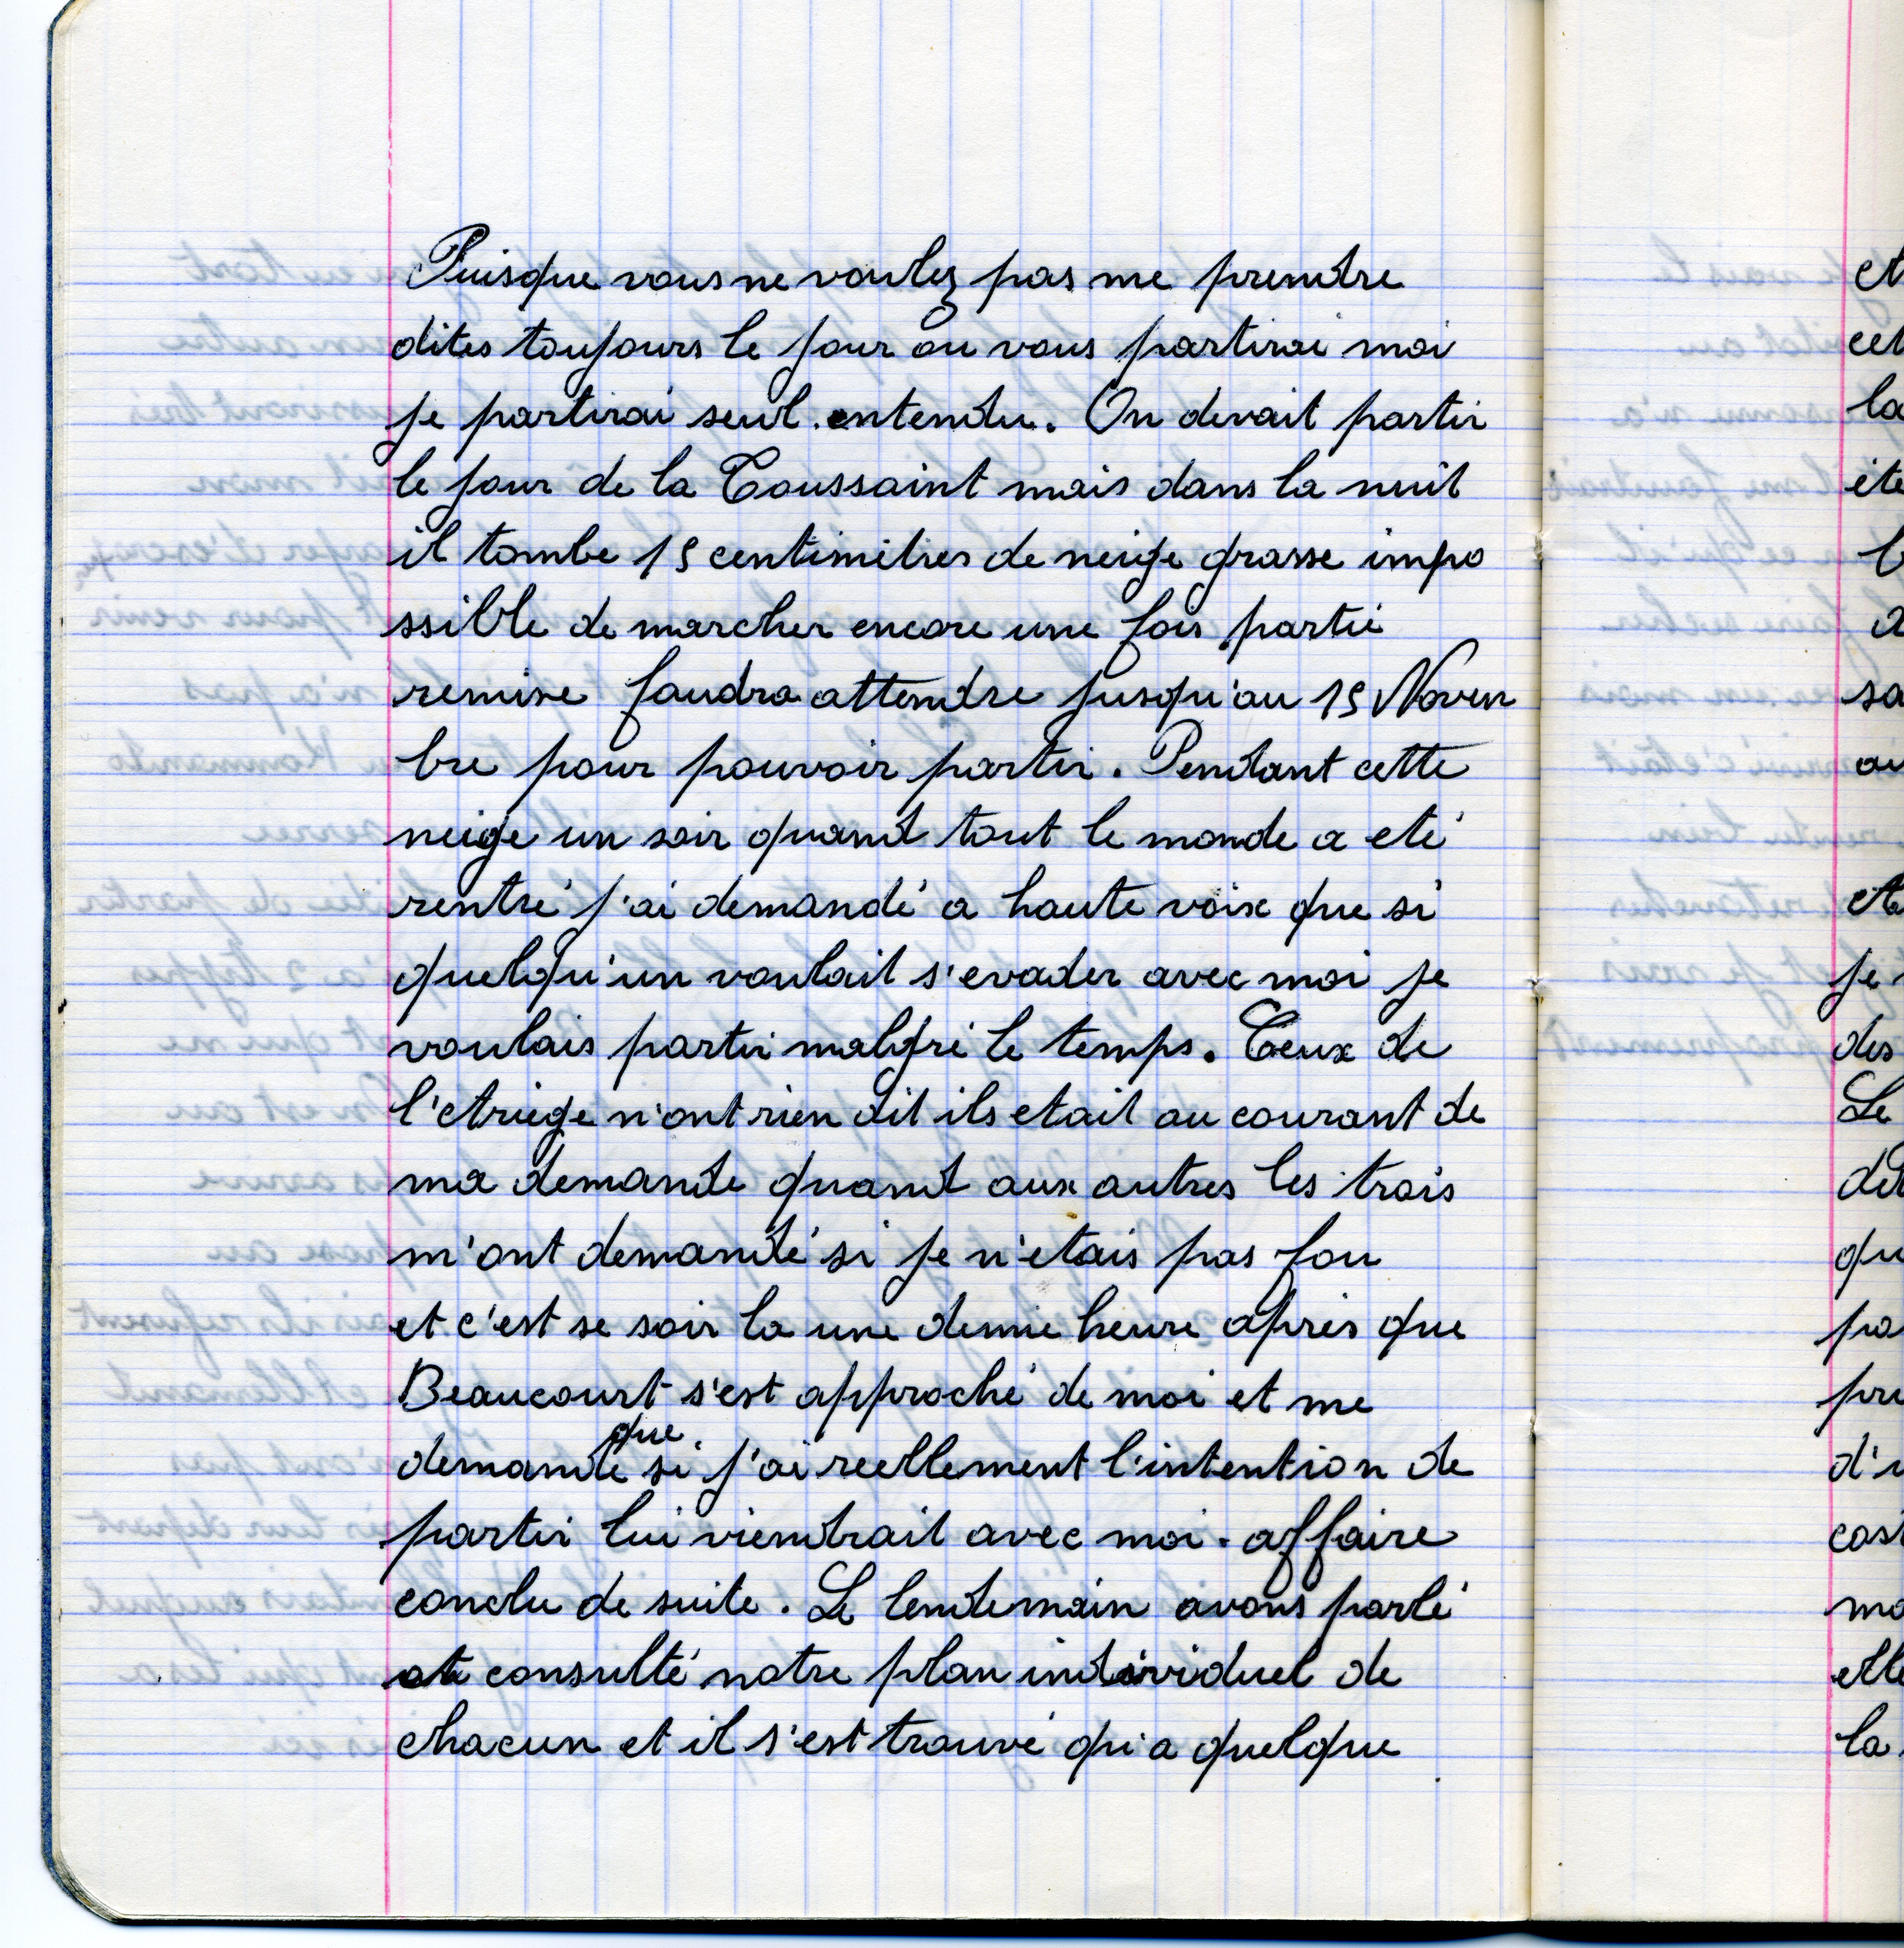 Puisque vous ne voulez pas me prendre
dites toujours le jour ou vous partirai moi
je partirai seul entendu. On devait partir
le jour de la Toussaint mais dans la nuit
il tombe 15 centimètres de neige grasse impo
ssible de marcher encore une fois partie
remise faudra attendre jusqu'au 15 Novem
bre pour pouvoir partir. Pendant cette
neige un soir quand tout le monde a eté
rentré j'ai demandé a haute voix que si
quelqu'un voulait s'evader avec moi je
voulais partir malgré le temps. Ceux de
l'etriege n'ont rien dit ils etait au courant de
ma demande quand aux autres les trois
m'ont demandé si je n'etais pas fou
et c'est se soir la une demie heure après que
Beaucourt s'est approché de moi et me
demande que si j'ai reellement l'intention de
partir lui viendrait avec moi. affaire
conclu de suite. Le lendemain avons parlé
et consulté notre plan individuel de
chacun et il s'est trouvé qu'a quelque
et
la
je
des
Le
d'u
la